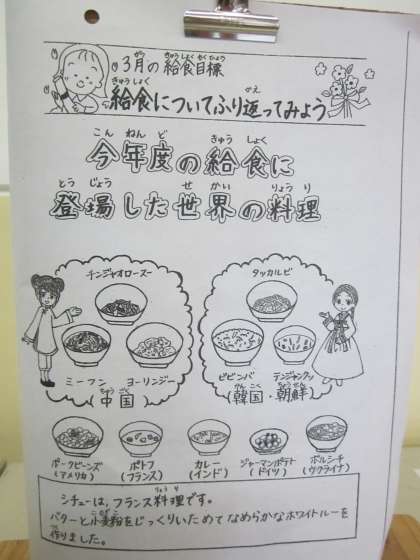 3月の給食目標
給食についてふり返ってみよう
今年度の給食に
登場した世界の料理
チンジャオロース
タッカルビ
ミーフン ヨーリンジー
ビビンバ テンジャンクッ
(中国)
(韓国・朝鮮)
ポークビーンズ ポトフ カレー ジャーマンポテト ボルシチ
(アメリカ) (フランス) (インド) (ドイツ) (ウクライナ)
シチューは、フランス料理です。
バターと小麦粉をじっくりいためてなめらかなホワイトルーを
作りました。